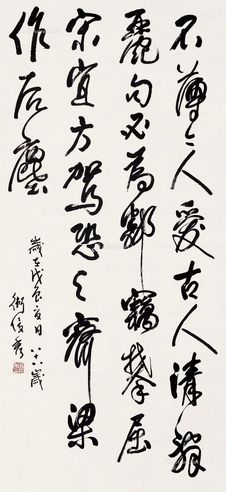 不薄今人愛古人清辭
麗句必為鄰竊攀屈
宋宜方駕恐與齊梁
作后塵
歲在戊辰夏日 歲
衛俊秀